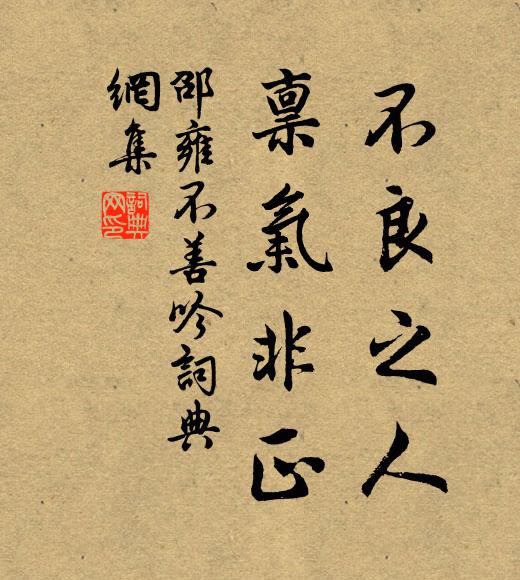 不良之人
禀氣非正
邵雍不善吟詞典
網集
詞典
网印